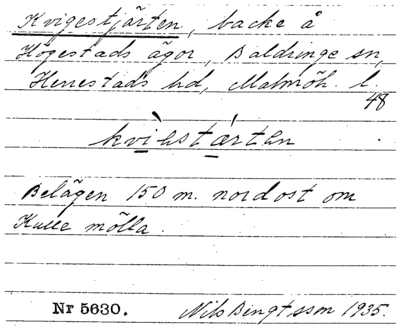 Kvigestjärten, backe å
Högestads ägor, Baldringe sn,
Herrestads hd, Malmöh. l.
48
Belägen 150 m. nordost om
Kulle mölla.
Nr 5630. Nils Bengtsson 1935.